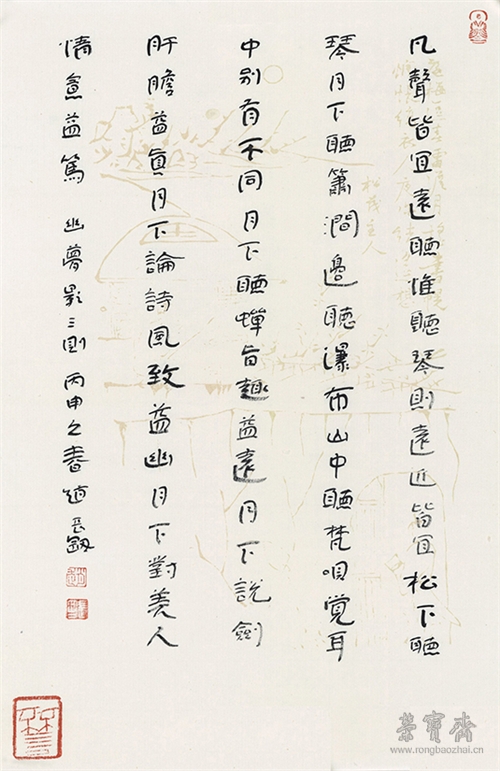 凡聲皆宜遠聽惟聽琴則遠近皆宜松下聽
琴月下聽簫澗邊聽瀑布山中聽梵唄覺耳
中別有不同月下聽蟬旨趣益遠月下說劍
肝膽益眞月下論詩風致益幽月下對美人
情意益篤 幽夢影三則 丙申之春 趙長
榮寶齋
www.rongbaozhai.cn